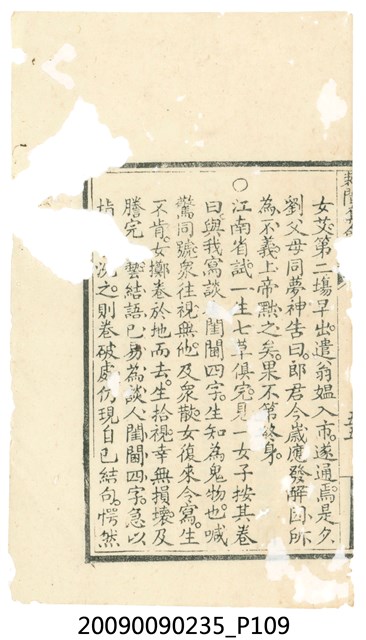 女茭第二塲早出遣翁媪入市遂通焉是夕
劉父母同夢神告曰郎君今歲應發解因所
為不義上帝黜之矣果不第終身
○江南省試一生七草俱完見一女子按其卷
曰與我寫談人閨閫四字生知為鬼物也喊
驚同號衆往視無他及衆散女復來令寫生
不肯女擲卷於地而去生拾視幸無損壞及
謄完 藝結語已易為談人閨閫四字急以
指 洗之則卷破處仍現自已結句愕然
20090090235_P109